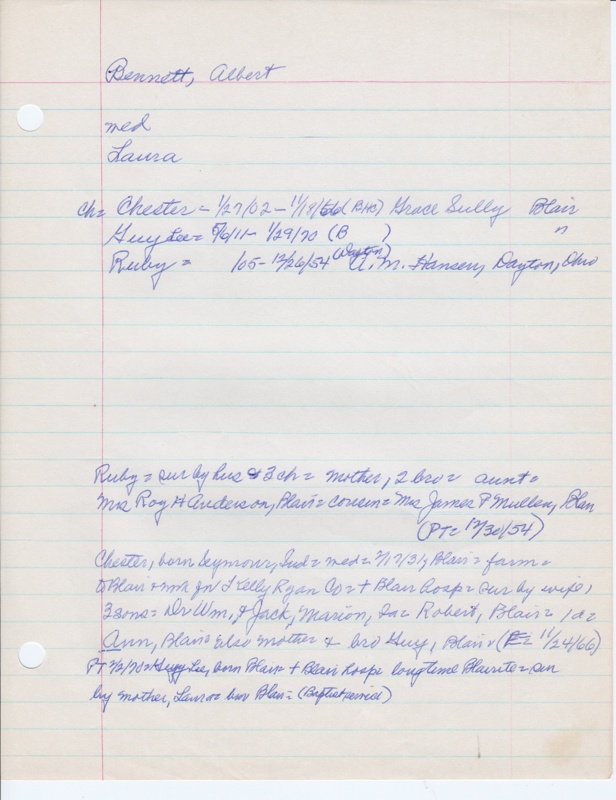 Bennett, Albert
med
Laura
ch= Chester - 1/27/02 - 11/18/66 (BHC) Grace Sully Blair
Guy Lee = 5/6/11 - 1/29/70 (B ) "
Ruby = /05 - 12/26/54 (Dayton) A. M. Hansen, Dayton, Ohio
Ruby = sur by hus & 3 ch = mother, 2 bro = aunt =
Mrs Roy H Anderson, Blair = cousin = Mrs James P Mullen, Blair
(PT= 12/30/54)
Chester, born Seymour, Ind = med = 2/17/31, Blair = farm =
Blair + wk for Kelly Ryan Co = + Blair hosp = sur by wife,
3 sons = Dr Wm, & Jack, Marion, Ia = Robert, Blair = 1 da =
Ann, Blair = also mother & bro Guy, Blair (E= 11/24/66)
PT Guy Lee, born Blair + Blair hosp longtime Blairite = sur
by mother, Laura Blair = (Baptist service)